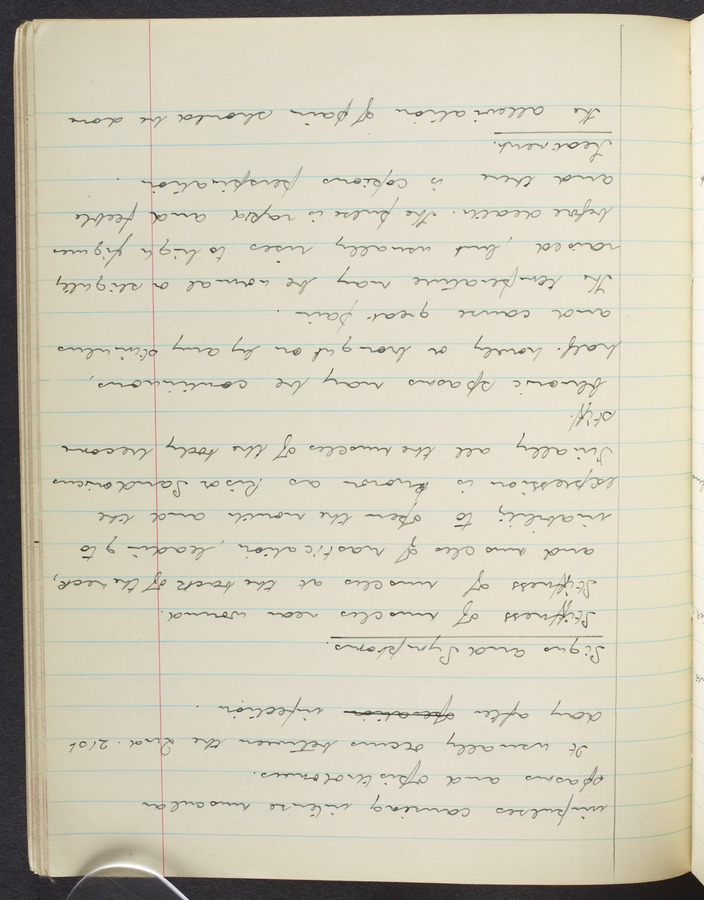 impulses causing intense muscular
spasms and opisthotonus.
It usually occurs between the 2nd. 21st
day after operation infection.
Signs and Symptoms.
Stiffness of muscles near wound.
Stiffness of muscles at the back of the neck,
and muscles of mastication, leading to
inability to open the mouth and the
expression is known as Risor Sardonicus
Finally all the muscles of the body become
stiff.
Chronic spasms may be continuous,
half. hourly or brought on by any stimulus
and cause great pain.
The temperature may be normal or slightly
raised, but usually rises to high figures
before death. The pulse is rapid and feeble
and there is copious perspiration.
Treatment.
The alleviation of pain should be done